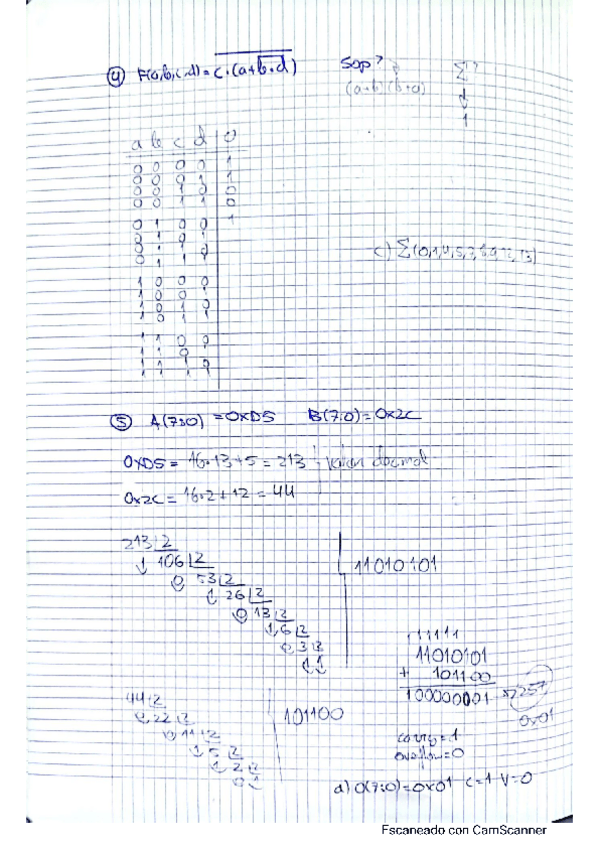 ④ F(a,b,c,d) = \overline{c·(a+\overline{b·d})} Sop? Σ?
(a+b)(b+a)
↓
1
a b c d | O
0 0 0 0 | 1
0 0 0 1 | 1
0 0 1 0 | 0
0 0 1 1 | 0
0 1 0 0 | 1
0 1 0 1
0 1 1 0
0 1 1
c) Σ(0,1,4,5,7,8,9,12,13)
1 0 0 0
1 0 0 1
1 0 1 0
1 0 1 1
1 1 0 0
1 1 0
1 1 1 0
⑤ A(7:0) = 0xD5 B(7:0) = 0x2C
0xD5 = 16·13+5 = 213 decimal
0x2C = 16·2+12 = 44
213 |2
1 106 |2
0 53 |2
1 26 |2
0 13 |2
1 6 |2
0 3 |2
1 1
11010101
11111
11010101
+ 101100
100000001 257
0x01
44 |2
0 22 |2
0 11 |2
1 5 |2
1 2 |2
0 1
101100
carry = 1
overflow = 0
a) O(7:0) = 0x01 C=1 V=0
Escaneado con CamScanner